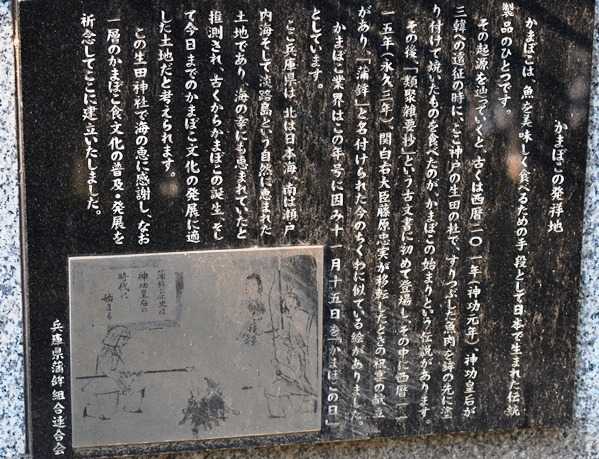 かまぼこの発祥地
かまぼこは、魚を美味しく食べるための手段として日本で生まれた伝統
製品のひとつです。
その起源を辿っていくと、古くは西暦二〇一年（神功元年）、神功皇后が
三韓への遠征の時に、ここ神戸の生田の社で、すりつぶした魚肉を鉾の先に塗
り付けて焼いたものを食べたのが、かまぼこの始まりという伝説があります。
その後、「類聚雑要抄」という古文書に初めて登場し、その中に西暦一一
一五年（永久三年）関白右大臣藤原忠実が移転したときの祝宴の献立
があり、「蒲鉾」と名付けられた今のちくわに似ている絵がありました。
かまぼこ業界はこの年号に因み十一月十五日を「かまぼこの日」
としています。
ここ兵庫県は、北は日本海、南は瀬戸
内海そして淡路島という自然に恵まれた
土地であり、海の幸にも恵まれていたと
推測され、古くからかまぼこの誕生、そし
て今日までのかまぼこ文化の発展に適
した土地だと考えられます。
この生田神社で海の恵に感謝し、なお
一層のかまぼこ食文化の普及・発展を
祈念してここに建立いたしました。
蒲鉾の歴史は
神功皇后の
時代に
始まる
兵庫県蒲鉾組合連合会